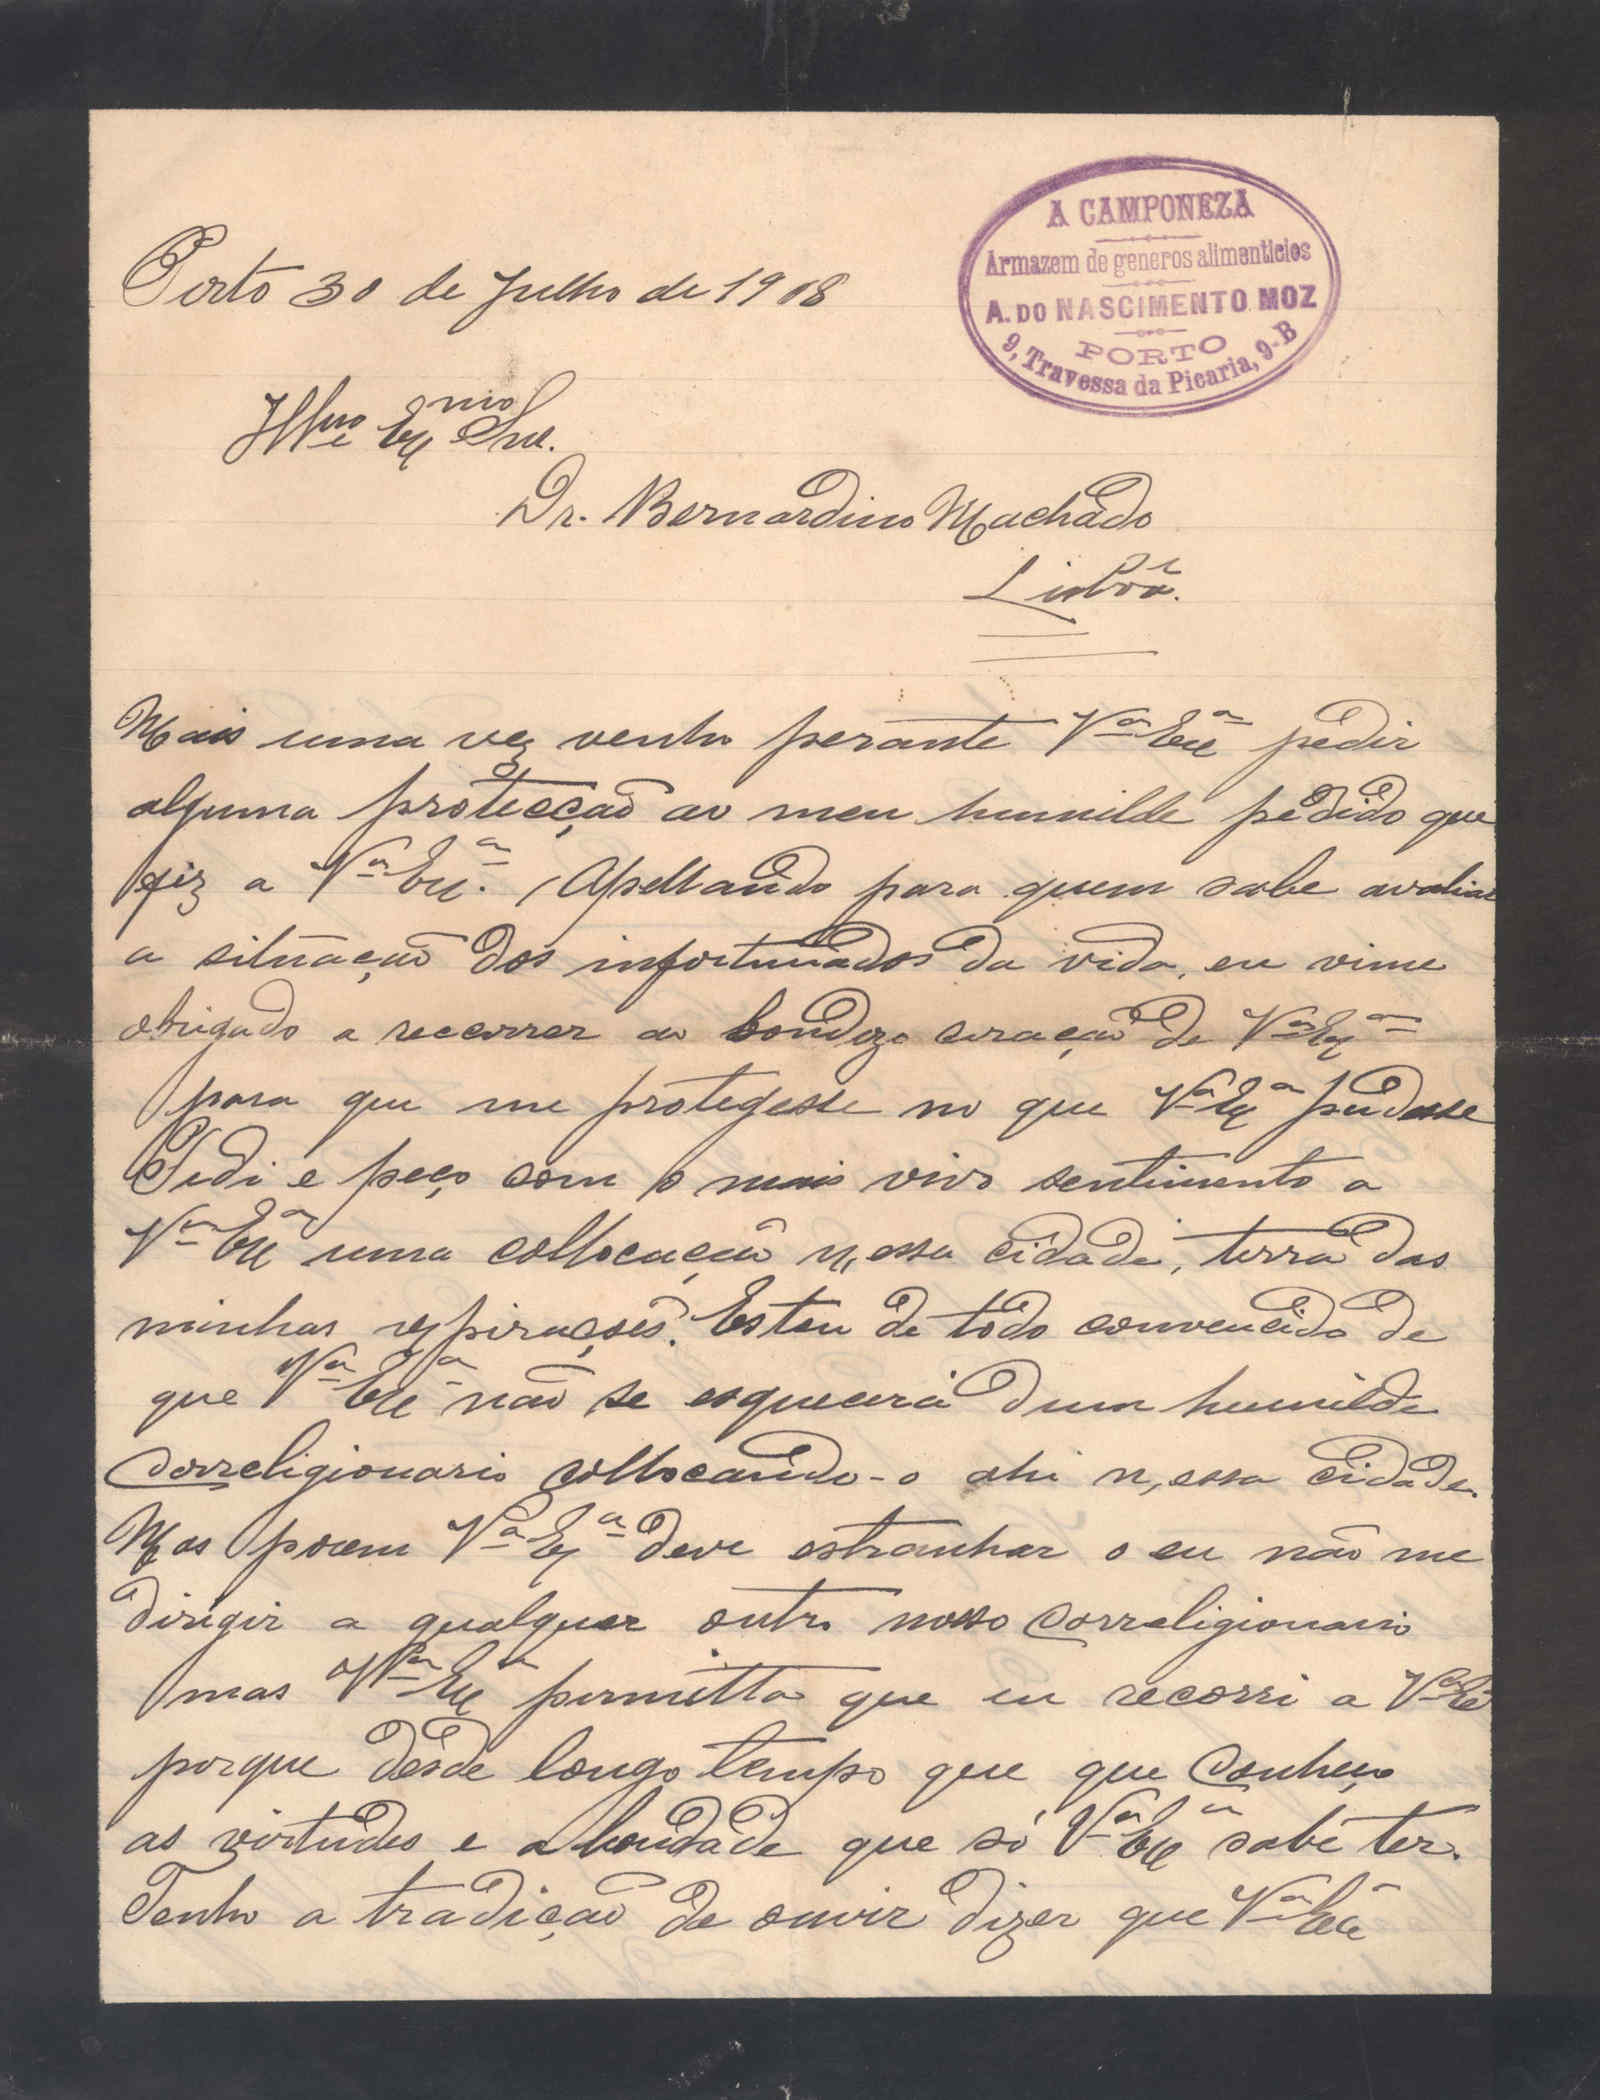 A CAMPONEZA
Armazem de generos alimenticios
A. DO NASCIMENTO MOZ
PORTO
9, Travessa da Picaria, 9-B
Porto 30 de Julho de 1908
Illmo Exmo Snr.
Dr. Bernardino Machado
Lisboa.
Mais uma vez venho perante Va Exa pedir
alguma protecção ao meu humilde pedido que
fiz a Va Exa. Apellando para quem sabe avaliar
a situação dos infortunados da vida, eu vime
obrigado a recorrer ao bondozo coração de Va Exa
para que me protegesse no que Va Exa pudesse
Pedi e peço com o mais vivo sentimento a
Va Exa uma collocação n,essa cidade, terra das
minhas aspirações. Estou de todo convencido de
que Va Exa não se esquecerá dum humilde
correligionario collocando-o ahi n,essa cidade.
Mas porem Va Exa deve estranhar o eu não me
dirigir a qualquer outro nosso correligionario
mas Va Exa permitta que eu recorri a Va Exa
porque desde longo tempo que que conheço
as virtudes e a bondade que só Va Exa sabe ter.
Tenho a tradição de ouvir dizer que Va Exa